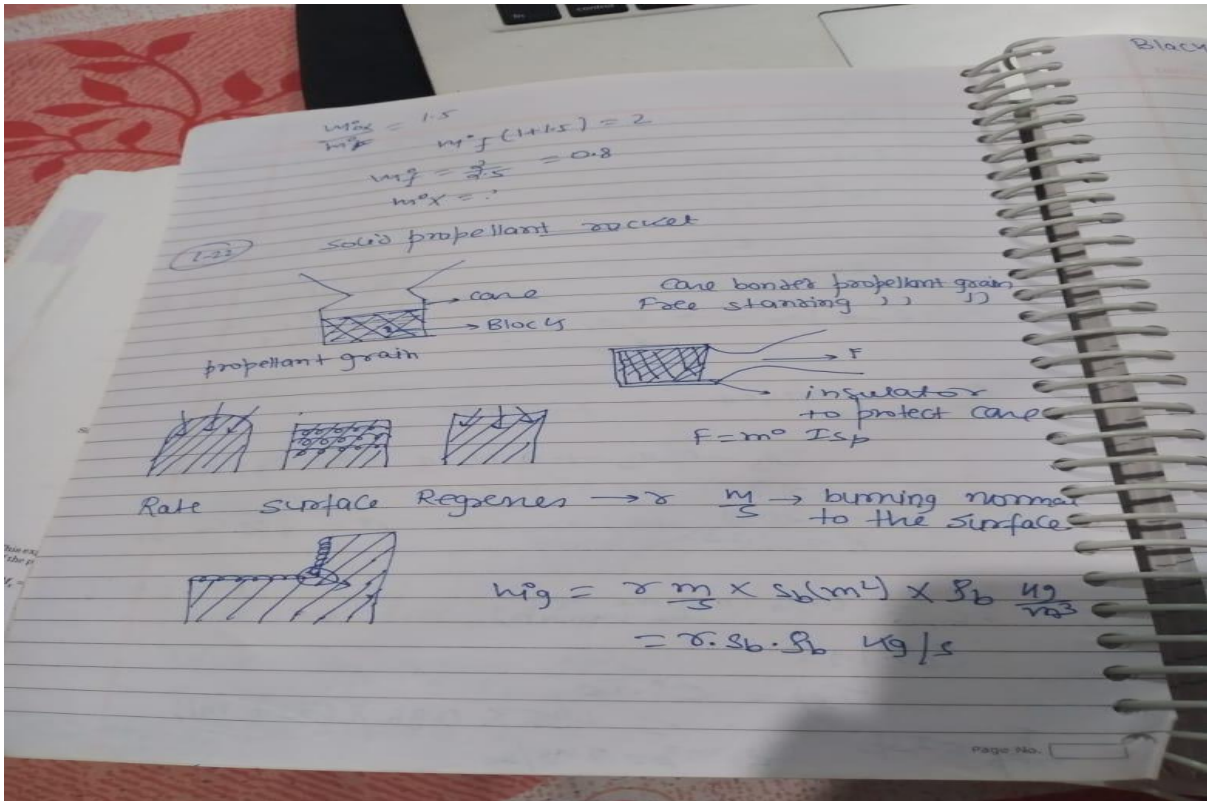 Black
ṁox/ṁf = 1.5
ṁf (1+1.5) = 2
ṁf = 2/2.5 = 0.8
ṁox = ?
L-22
Solid propellant rocket
case
Block
propellant grain
Case bonded propellant grain
Free standing ,, ,,
F
insulator
to protect case
F = ṁ Isp
Rate surface Regresses → r m/s → burning normal
to the surface
ṁg = r m/s × Sb(m²) × ρb kg/m³
= r. Sb. ρb kg/s
Page No.